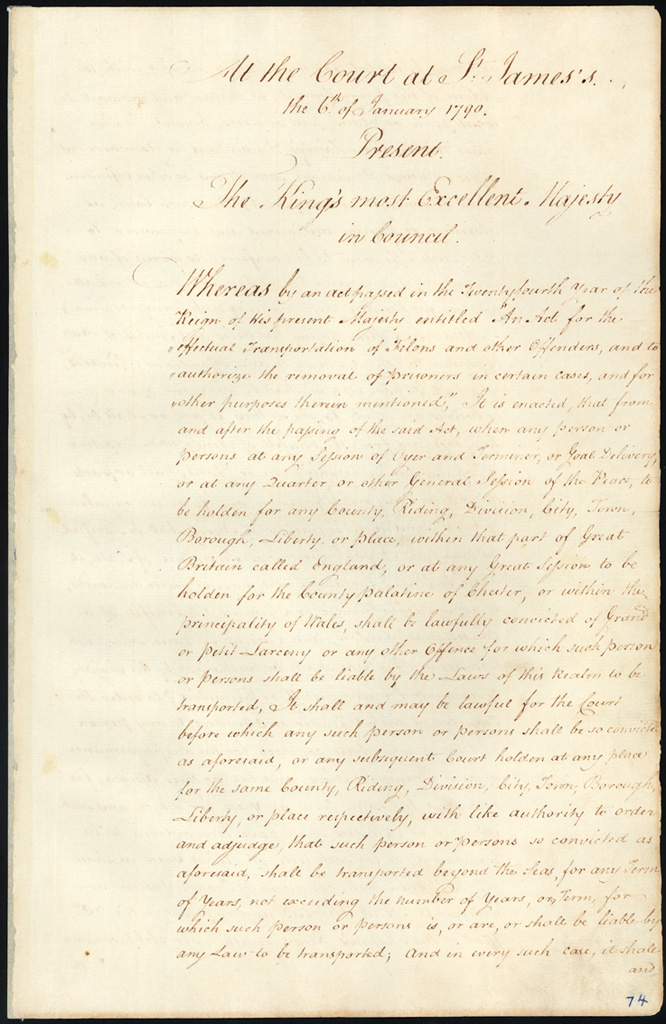 At the Court at St. James's.
the 6th of January 1790.
Present.
The King's most Excellent Majesty
in Council.
Whereas by an act passed in the Twenty fourth Year of the
Reign of His present Majesty entitled "An Act for the
effectual Transportation of Felons and other Offenders, and to
authorize the removal of prisoners in certain cases, and for
other purposes therein mentioned," It is enacted, that from
and after the passing of the said Act, when any person or
persons at any Session of Oyer and Terminer, or Goal Delivery,
or at any Quarter or other General Session of the Peace, to
be holden for any County, Riding, Division, City, Town,
Borough, Liberty, or place, within that part of Great
Britain called England, or at any Great Session to be
holden for the County palatine of Chester, or within the
principality of Wales, shall be lawfully convicted of Grand
or petit Larceny or any other Offence for which such person
or persons shall be liable by the Laws of this Realm to be
transported, It shall and may be lawful for the Court
before which any such person or persons shall be so convicted
as aforesaid, or any subsequent Court holden at any place
for the same County, Riding, Division, City, Town, Borough,
Liberty, or place respectively, with like authority to order
and adjudge, that such person or persons so convicted as
aforesaid, shall be transported beyond the Seas, for any Term
of Years, not exceeding the number of Years, or Term, for
which such person or persons is, or are, or shall be liable by
any Law to be transported; and in every such case, it shall
and
74